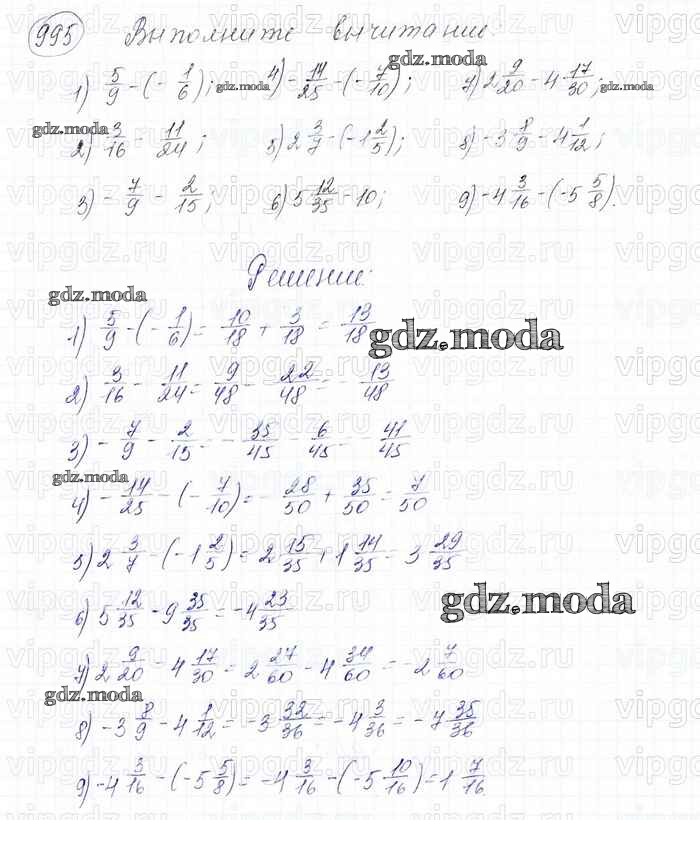 995 Выполните вычитание:
1) 5/9 - (- 1/6); 4) - 14/25 - (- 7/10); 7) 2 9/20 - 4 17/30;
2) 3/16 - 11/24; 5) 2 3/7 - (-1 2/5); 8) -3 8/9 - 4 1/12;
3) - 7/9 - 2/15; 6) 5 12/35 - 10; 9) -4 3/16 - (-5 5/8).
Решение:
1) 5/9 - (- 1/6) = 10/18 + 3/18 = 13/18
2) 3/16 - 11/24 = 9/48 - 22/48 = - 13/48
3) - 7/9 - 2/15 = - 35/45 - 6/45 = - 41/45
4) - 14/25 - (- 7/10) = - 28/50 + 35/50 = 7/50
5) 2 3/7 - (-1 2/5) = 2 15/35 + 1 14/35 = 3 29/35
6) 5 12/35 - 9 35/35 = -4 23/35
7) 2 9/20 - 4 17/30 = 2 27/60 - 4 34/60 = -2 7/60
8) -3 8/9 - 4 1/12 = -3 32/36 = -4 3/36 = -7 35/36
9) -4 3/16 - (-5 5/8) = -4 3/16 - (-5 10/16) = 1 7/16
gdz.moda
vipgdz.ru